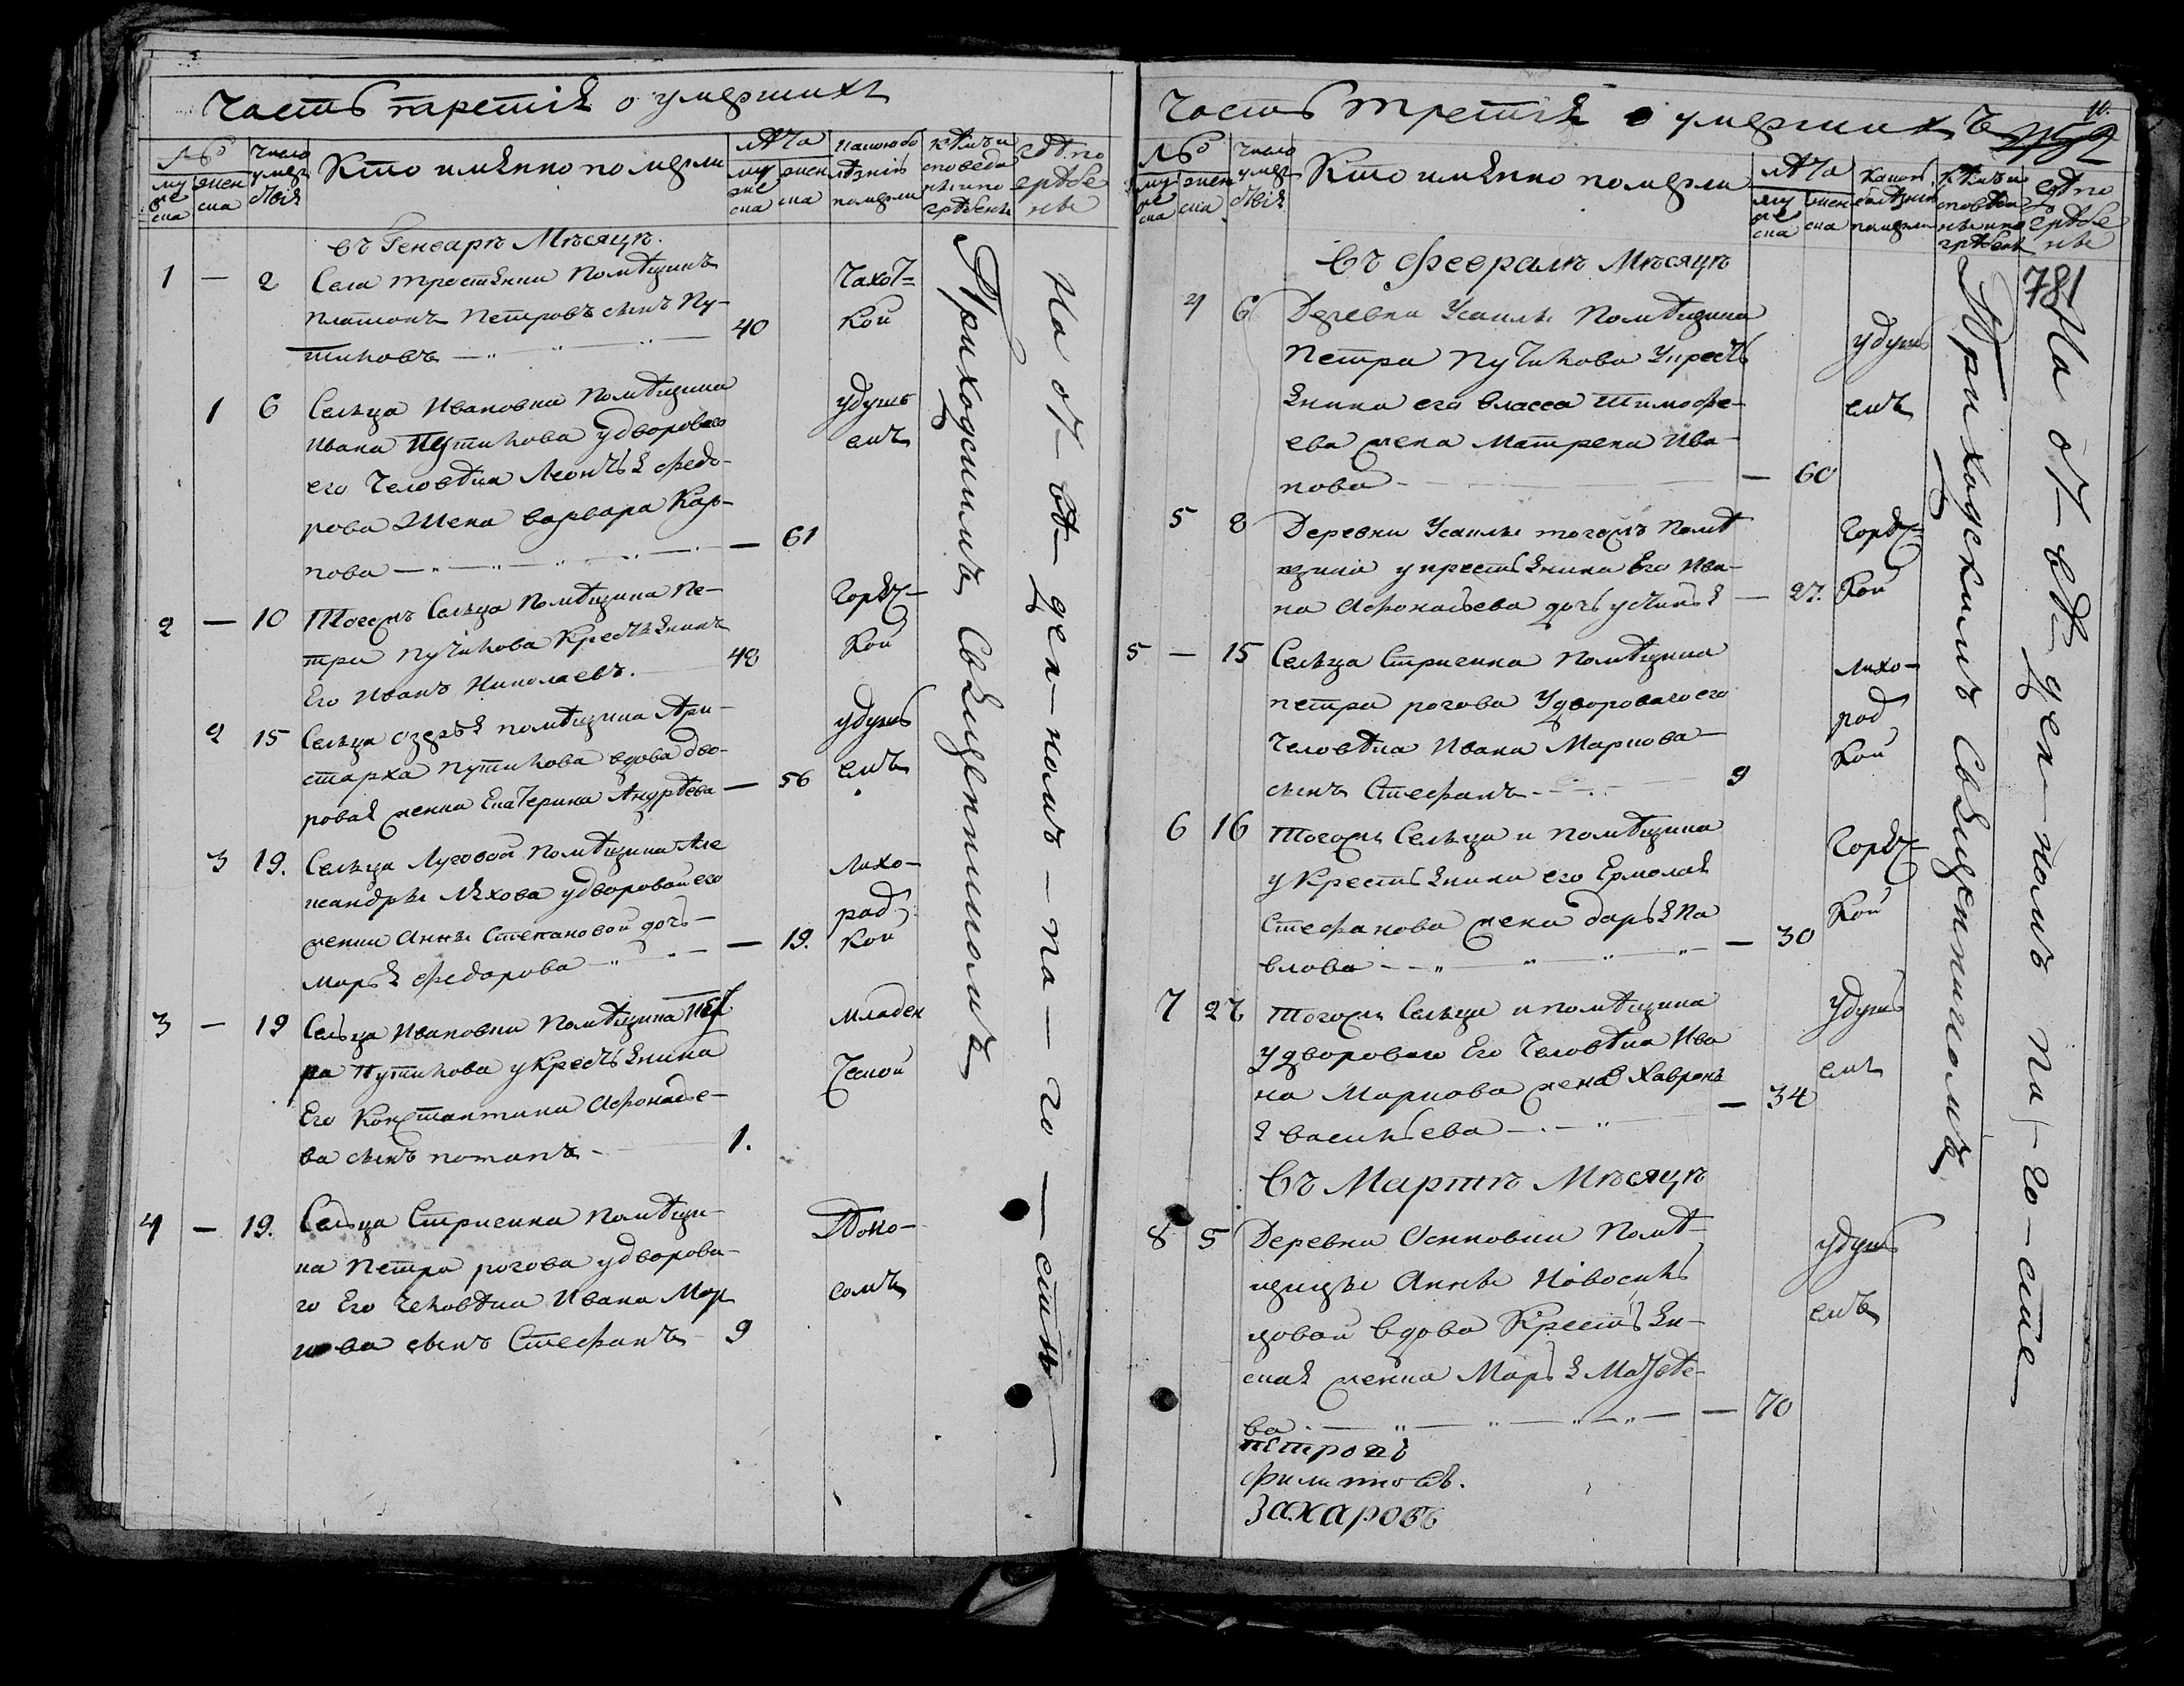 Часть третія о умершихъ
№
муже
ска
жен
ска
число
умер
ствія
Кто имянно померли
лѣта
муже
ска
жен
ска
какою бо
лѣзнію
померли
кѣмъ и
споведа
ны и по
гребены
гдѣ по
гребе
ны
въ Генваръ Мѣсяцъ.
1 — 2 Села тростянки Помѣщикъ
платонъ Петровъ сынъ Пу-
тиловъ — 40 Чахот=
кой
1 6 Сельца Ивановки Помѣщика
Ивана Путилова удвороваго
его Человѣка Леонтья Федо-
рова Жена варвара Кар-
пова — 61 удушь
емъ
2 — 10 Тогожъ Сельца Помѣщика Пе-
тра Путилова Крестьянинъ
Его Иванъ Николаевъ. 48 Горяч-
кой
2 15 Сельца помѣщика Ари-
старха Путилова вдова дво-
ровая женка Екатерина Андрѣева — 56 удушь
емъ
3 19. Сельца Луговой Помѣщика Але
ксандры Ляхова удворовой его
женки Анны Степановой дочь
Марья Федорова — 19. Лихо-
рад
кой
3 — 19 Сельца Ивановки Помѣщика Пет
ра Путилова у Крестьянина
Его Константина Афонасье-
ва сынъ потапъ — 1. Младен
ческой
4 — 19. Сельца Стригинка помѣщи-
ка Петра рогова удворова-
го Его Человѣка Ивана Мар
кова сынъ Стефанъ — 9 Поно-
сомъ
Приходскимъ Священникомъ
На от-вѣ-ден-номъ-по-го-стѣ
Часть третія о умершихъ
10.
781
№
муже
ска
жен
ска
число
умер
ствія
Кто имянно померли
лѣта
муже
ска
жен
ска
какою
болѣзнію
померли
кѣмъ и
споведа
ны и по
гребены
гдѣ по
гребе
ны
Въ Февралъ Мѣсяцъ
4 6 Деревни Усадьбы Помѣщика
Петра Путилова Укресть
янина его власса Тимофе-
ева жена Матрена Ива-
нова — 60 удушь
емъ
5 8 Деревни Усадьбы тогожъ Помѣ
щика укрестьянина Его Ива-
на Афонасьева дочь устинья — 27. Горяч
кой
5 — 15 Сельца Стригинка Помѣщика
петра рогова Удвороваго его
Человѣка Ивана Маркова
сынъ Стефанъ — 9 Лихо-
рад
кой
6 16 Тогожъ Сельца и помѣщика
у Крестьянина его Ермолая
Стефанова жена дарья Па
влова — 30 Горяч
кой
7 27 Тогожъ Сельца и помѣщика
удвороваго Его Человѣка Ива
на Маркова жена Хавронь
я васильева — 34 Удушь
емъ
Въ Мартъ Мѣсяцъ
8 5 Деревни Осиновки Помѣ-
щицы Анны Новосиль
цовой вдова Крестьян-
ская женка Марья Матвѣе-
ва — 70 удушь
емъ
Приходскимъ Священникомъ
На от-вѣ-ден-номъ по-го-стѣ
петровъ
захаровъ